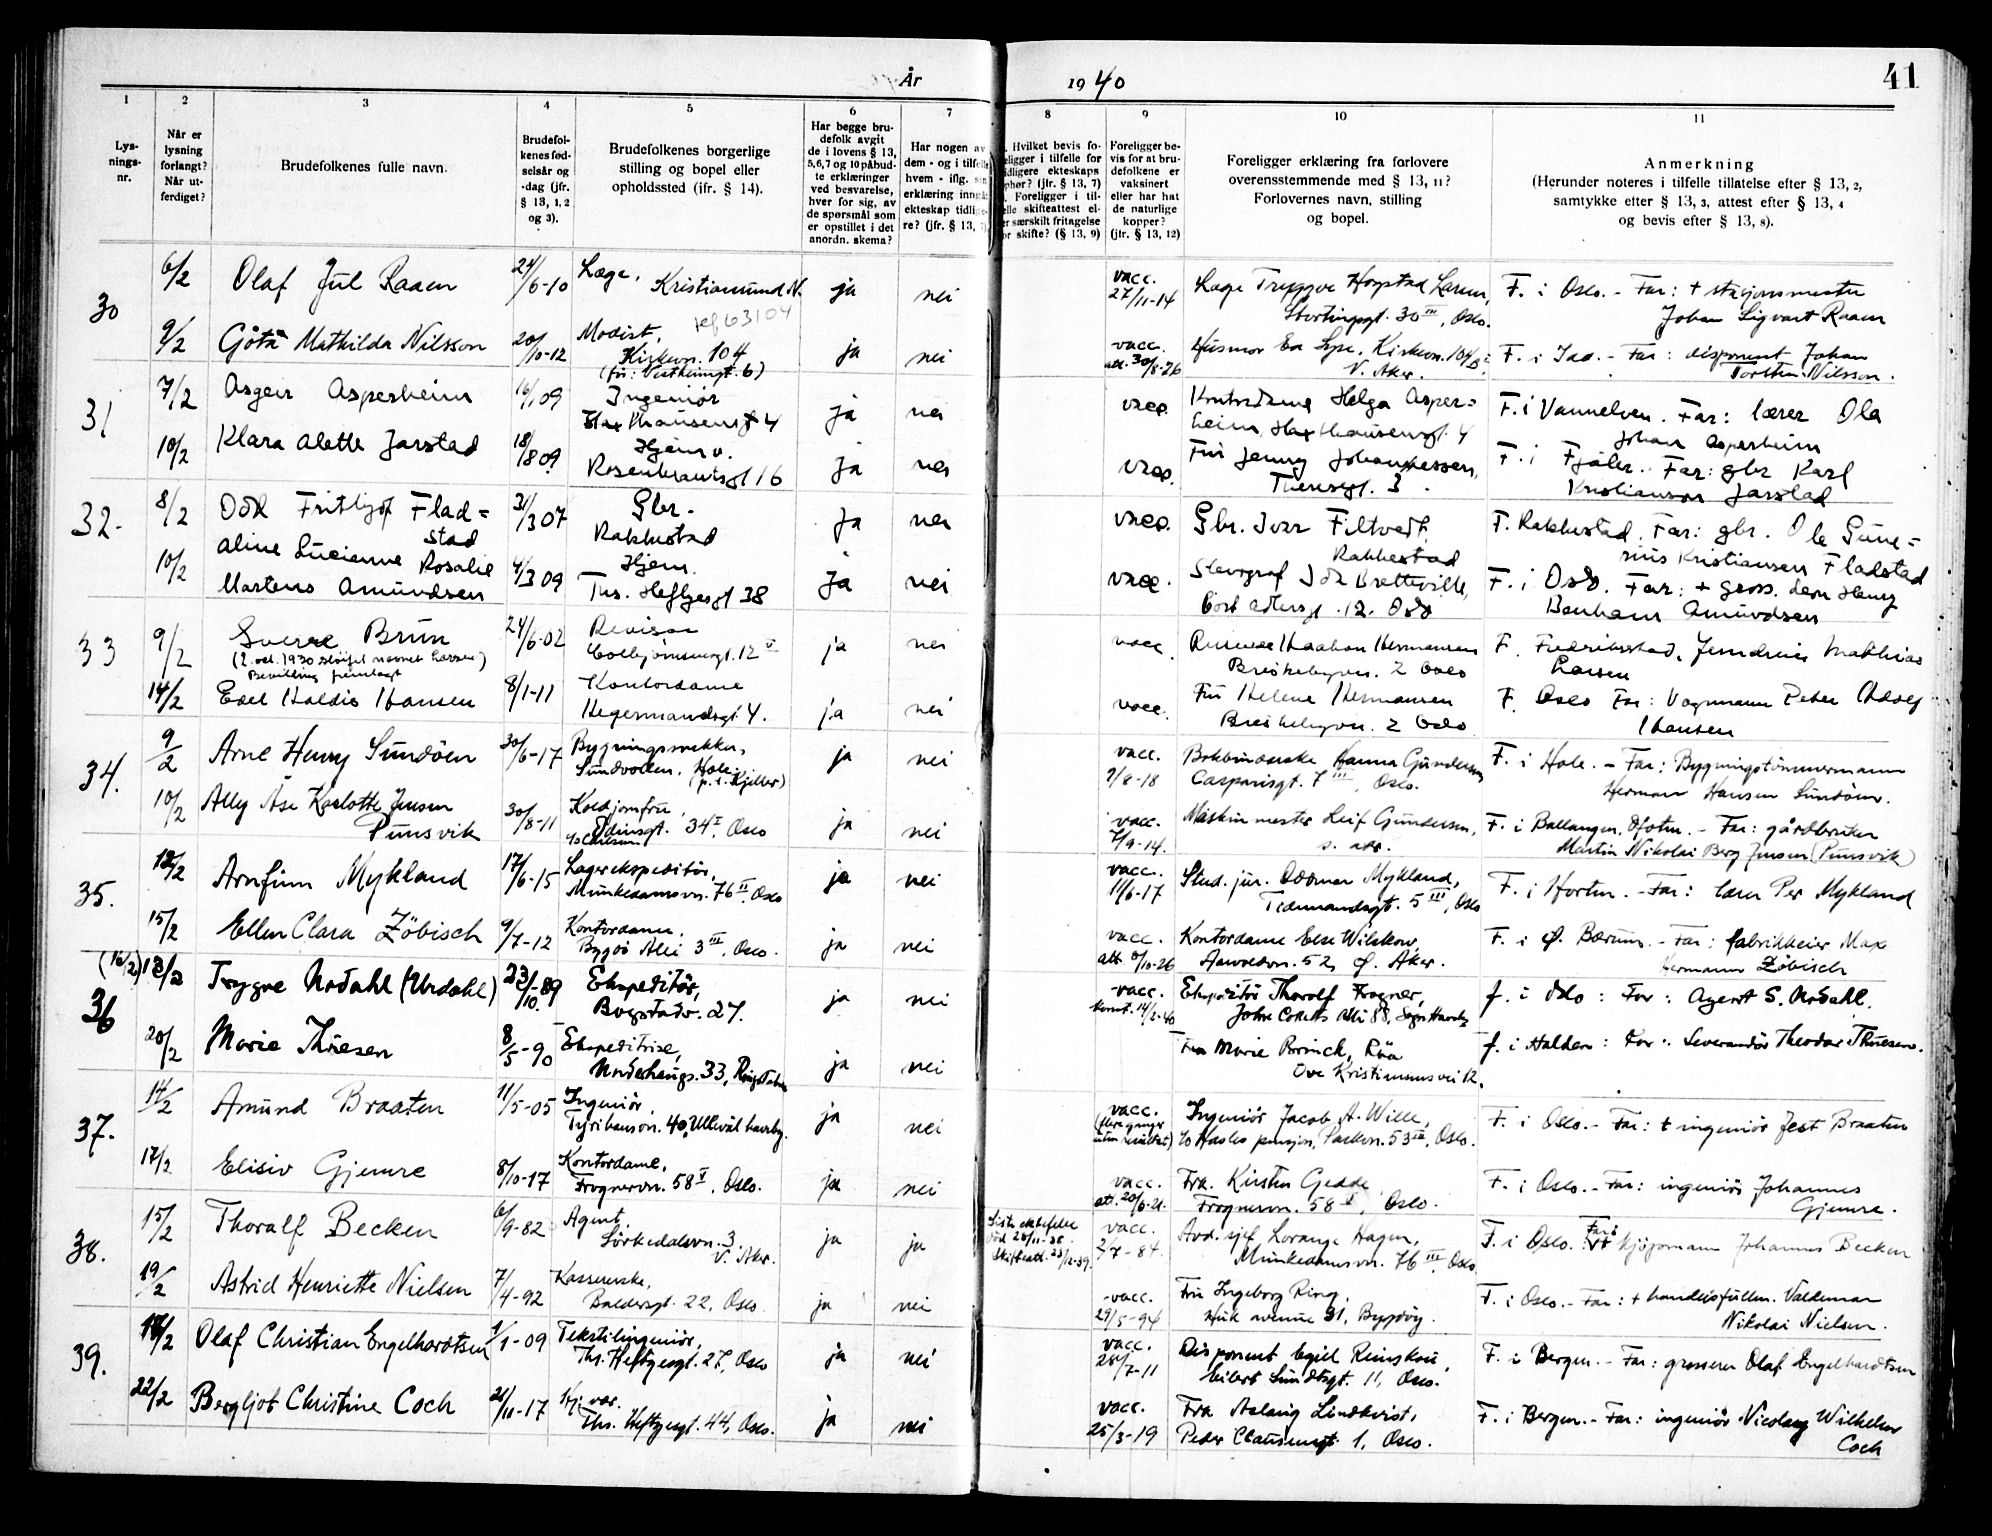 År
1940
41
1
2
3
4
5
6
7
8
9
10
11
Lys-
nings-
nr.
Når er
lysning
forlangt?
Når ut-
ferdiget?
Brudefolkenes fulle navn.
Brudefol-
kenes fød-
selsår og
-dag (jfr.
§ 13, 1, 2
og 3).
Brudefolkenes borgerlige
stilling og bopel eller
opholdssted (jfr. § 14).
Har begge bru-
defolk avgit
de i lovens § 13,
5, 6, 7 og 10 påbud-
te erklæringer
ved besvarelse,
hver for sig, av
de spørsmål som
er opstillet i det
anordn. skema?
Har nogen av
dem - og i tilfelle
hvem - iflg. sin
erklæring inngå
ekteskap tidlige-
re? (jfr. § 13,
Hvilket bevis fo-
eligger i tilfelle for
idligere ekteskaps
phør? (jfr. § 13, 7)
Foreligger i til-
elle skifteattest el-
er særskilt fritagelse
or skifte? (§ 13, 9)
Foreligger be-
vis for at bru-
defolkene er
vaksinert
eller har hat
de naturlige
kopper?
(jfr. § 13, 12)
Foreligger erklæring fra forlovere
overensstemmende med § 13, 11?
Forlovernes navn, stilling
og bopel.
Anmerkning
(Herunder noteres i tilfelle tillatelse efter § 13, 2,
samtykke efter § 13, 3, attest efter § 13, 4
og bevis efter § 13, 8).
30
6/2 Olaf Jul Raaen 24/6-10 Læge, ja nei vacc. Læge Tryggve Hogstad Larsen, F. i Oslo. - Far: + stasjonsmester
Kristiansund N. 27/11-14 Stortingsgt. 30 III, Oslo. Johan Sigvart Raaen
9/2 Götä Mathilda Nilsson 20/10-12 Modist, ja nei vacc. Husmor Eva Lyse, Kirkevn. 104 B F. i Idd. - Far: disponent Johan
Kirkevn. 104 att. 30/8-26 V. Aker. Torsten Nilsson.
(før: Vestheimgt. 6)
31
7/2 Asgeir Asperheim 16/1 09 Ingeniør ja nei vacc. Kontordame Helga Asper= F. i Vannelven. Far: lærer Ola
Thaulowsgt 4 heim, 4 Johan Asperheim
10/2 Klara Alette Jarstad 18/8 09 Hjemv. ja nei vacc. Frú Jenny Johannessen, F. i Fjaler. Far: gbr Karl
Rosenkrantzgt 16 Theresgt. 3. Kristiansen Jarstad
32.
8/2 Odd Frithjof Flad= 31/3 07 Gbr. ja nei vacc. Gbr. Ivar Filtvedt, F. Rakkestad. Far: gbr. Ole Gune=
stad Rakkestad Rakkestad rius Kristiansen Fladstad
10/2 Aline Lucienne Rosalie 4/3 09 Hjem. ja nei vacc. F. i Oslo. Far: + gross. Leon Henry
Martens Amundsen Ths. Heftyesgt 38 Cort Adelersgt. 12. Oslo Bonham Amundsen
33
9/2 Sverre Brun 24/6-02 Revisor ja nei vacc. Haakon Hermansen F. Fredrikstad. Mathias
(2. okt. 1930 sløifet navnet Larsen) Colbjørnsensgt. 12 V Briskebyvn. 2 Oslo Larsen
Bevilling fremlagt
14/2 Edel Haldis Hansen 8/1-11 Kontordame ja nei vacc. Frú Helene Hermansen F. Oslo Far: Vognmann Peter Adolf
Hegermannsgt. 4. Briskebyvn. 2 Oslo Hansen
34.
9/2 Arne Henry Sundöen 30/6-17 Bygningssnekker, ja nei vacc. Bokbinderske Hanna Gundersen F. i Hole. - Far: Bygningstömmermann
Sundvollen, Hole. (p.t. Kjeller) 9/8-18 Casparisgt. 7 III, Oslo. Herman Hansen Sundöen.
10/2 Ally Åse Karlotte Jensen 30/8-11 Koldjomfru, ja nei vacc. Maskinmester Leif Gundersen, F. i Ballangen, Ofoten. - Far: gårdbruker
Pünsvik Odinsgt. 34 I, Oslo 7/9-14. s. adr. Martin Nikolai Berg Jensen (Pünsvik)
% Carlsen
35.
12/2 Arnfinn Mykland 17/6-15 Lagerekspeditör, ja nei vacc. Stud. jur. Oddmar Mykland, F. i Horten. - Far: lærer Per Mykland
Munkedamsvn. 76 II, Oslo 11/6-17 Tidemandsgt. 5 III, Oslo
15/2 Ellen Clara Zöbisch 9/7-12 Kontordame, ja nei vacc. Kontordame Else Wilskow, F. i Ø. Bærum. - Far: fabrikkeier Max
Bygdö Allé 3 III, Oslo. att. 8/10-26 52, Ø. Aker. Hermann Zöbisch
36
(16/2) 13/2 Trygve Urdahl (Urdahl) 23/10-89 Ekspeditör, ja nei vacc. Ekspeditör Thoralf Frogner, f. i Oslo: Far: Agent S. Urdahl.
Bogstadv. 27. 14/2-40 John Colletts Alle 88,
20/2 Marie Thuesen 8/5-90 Ekspeditrise, ja nei Fru Marie Brinch, Röa f. i Halden: Far: Leverandör Theodor Thuesen.
33, Ringstabek Ove Kristiansens vei 12.
37.
14/2 Amund Braaten 11/5-05 Ingeniör, ja nei vacc. Ingeniör Jacob H. Wille, F. i Oslo. - Far: + ingeniör Jost Braaten
Tyrihansvn. 40, Ullevål haveby. (flere ganger uten resultat) % Haslos pensjon, Parkvn. 53 III, Oslo.
17/2 Elisiv Gjemre 8/10-17 Kontordame, ja nei vacc. Fru. Kirsten Gedde F. i Oslo. - Far: ingeniör Johannes
Frognervn. 58 V, Oslo. att. 20/6-21. Frognervn. 58 V, Oslo. Gjemre.
38.
15/2 Thoralf Becken 6/9-82 Agent, ja ja vacc. Avd. sjef Lorange Hagen, F. i Oslo. Far: kjöpmann Johannes Becken
Sörkedalsvn. 3 V. Aker. Siste ektefelle död 28/11-38. Skifteatt. 23/12-39. 2/7-84. Munkedamsvn. 76 III, Oslo
19/2 Astrid Henriette Nielsen 7/4-92 Kassererske, ja nei vacc. Frú Ingeborg Ring, F. i Oslo. - Far: + handelsfullm. Valdemar
Baldersgt. 22, Oslo. 29/5-94 Huk avenue 31, Bygdöy. Nikolai Nielsen.
39.
17/2 Olaf Christian Engelhardtsen 1/1-09 Tekstilingeniör, ja nei vacc. Disponent Egill Reimskou, F. i Bergen. - Far: grosserer Olaf Engelhardtsen
Ths. Heftyesgt. 27, Oslo 28/7-11 Eilert Sundtsgt. 11, Oslo.
22/2 Bergljot Christine Coch 21/11-17 Hj. vær. ja nei vacc. Fru Aslaug Lindkvist, F. i Bergen. - Far: ingeniör Nicolay Wilhelm
Ths. Heftyesgt. 44, Oslo. 25/3-19 Peder Claussensgt. 1, Oslo. Coch